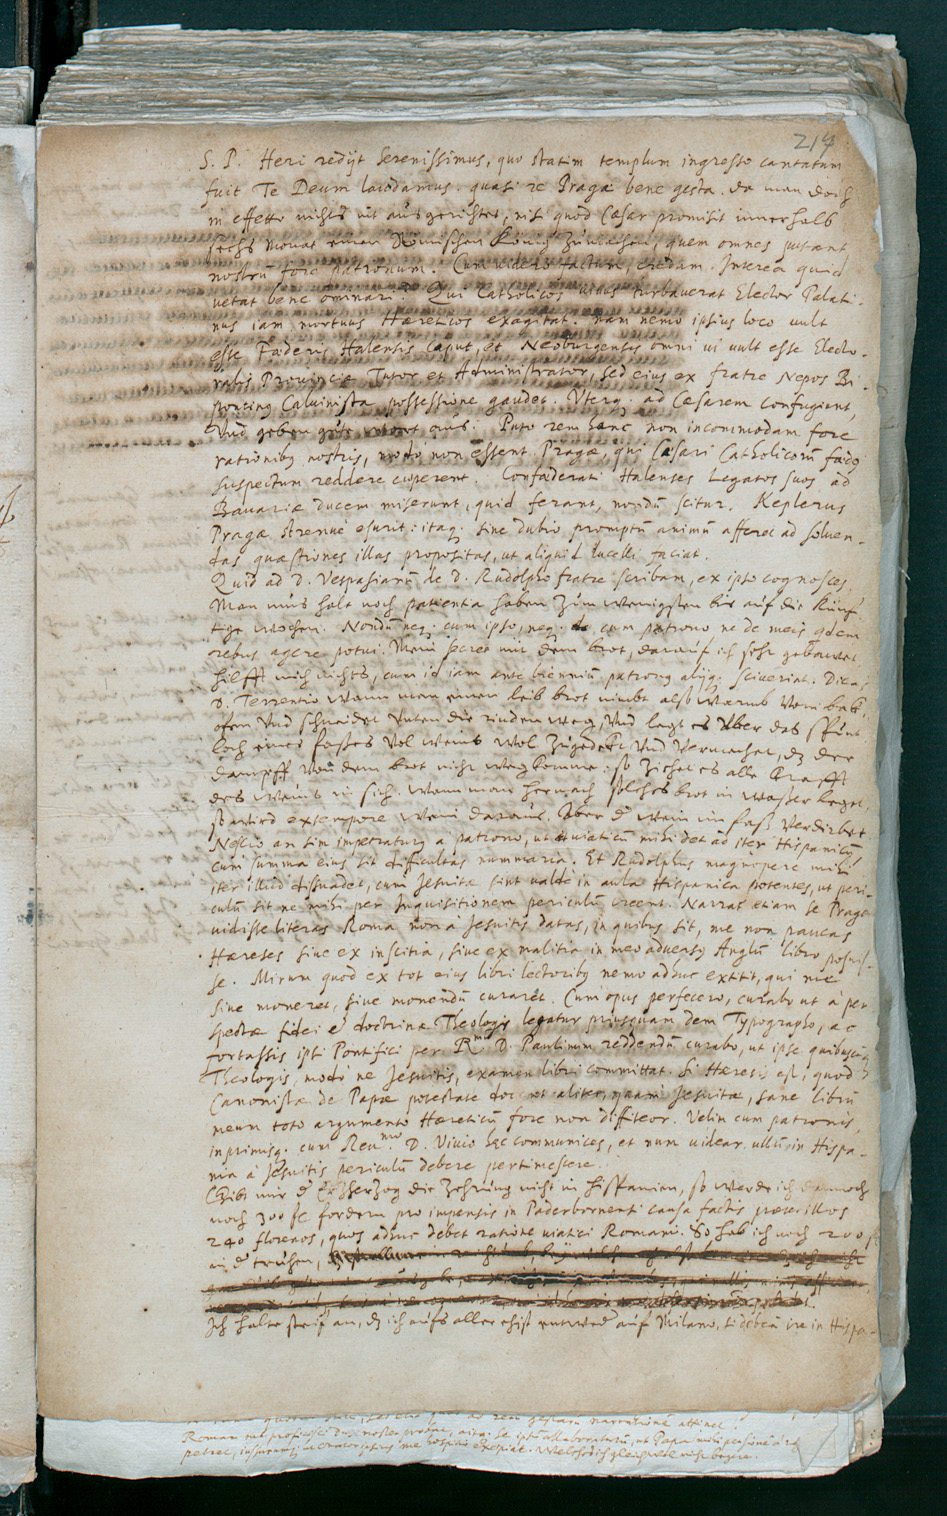 214
S. P. Heri redijt Serenissimus, quo statim templum ingresso cantatum
fuit Te Deum laudamus. quasi re Pragæ bene gesta. da man doch
in effetto nichts nit ausgerichtet, nisi quod Cæsar promisit innerhalb
sechs monat einen Römischen König zumachen, quem omnes putant
nostrum fore patronum. Cum videro factum, credam. Interea quid
vetat bene ominari? Qui Catholicos turbaverat Elector Palati-
nus iam mortuus Hæreticos exagitat. nam nemo ipsius loco vult
esse Fœderis Halensis caput, et Neoburgensis omni vi vult esse Electo-
ralis Provinciæ Tutor et Administrator, sed eius ex fratre Nepos Bi-
pontinus Calvinista possessione gaudet. Uterq; ad Cæsarem confugiunt,
Und geben gute wort aus. Puto rem hanc non incommodam fore
rationibus nostris, modo non essent Pragæ, qui Cæsari Catholicorum fœdus
suspectum reddere cuperent. Confœderati Halenses Legatos suos ad
Bavariæ ducem miserunt, quid ferant, nondum scitur. Keplerus
Pragæ strenue esurit: itaq; sine dubio promptum animum afferet ad solven-
das quæstiones illas propositas, ut aliquid lucelli faciat.
Quid ad D. Vespasianum de D. Rudolpho fratre scribam, ex ipso cognosces.
Man mus halt noch patientia haben zum wenigsten bis auf die künf-
tige wochen. Nondum neq; cum ipso, neq; cum patrono ne de meis quidem
rebus agere potui. Mein secret mit dem brot, darauf ich sehr gebauet
hilfft mich nichts, cum id iam ante biennium patronus alijq; sciverint. Dicas
D. Terrentio wann man einen leib brot nimbt also warmb vom bak-
ofen und schneidet unten die rinden weg, und legt es über das spunt
loch eines fasses vol weins wol zugedekt und vermachet, dz der
dampff von dem brot nicht weg komme: so ziehet es alle krafft
des weins in sich. Wann man hernach solches brot in wasser leget,
so wird extempore wein daraus. Aber d wein im faß verdirbet.
Nescio an sim impetraturus a patrono, ut viaticum mihi det ad iter Hispanicum
cum summa eius sit difficultas nummaria. Et Rudolphus magnopere mihi
iter illud dissuadet, cum Jesuitæ sint valde in aula Hispanica potentes, ut peri-
culum sit ne mihi per Inquisitionem periculum creent. Narrat etiam se Pragæ
vidisse literas Roma non à Jesuitis datas, in quibus sit, me non paucas
Hæreses sive ex inscitia, sive ex malitia in meo adversus Anglum libro posuis-
se. Mirum quod ex tot eius libri lectoribus nemo adhuc extitit, qui me
sive moneret, sive monendum curaret. Cum opus perfecero, curabo ut à per-
spectæ fidei et doctrinæ Theologis legatur priusquam dem Typographo, ac
fortassis ipsi Pontifici per Rmum D. Paulinum reddendum curabo, ut ipse quibuscumq;
Theologis, modo ne Jesuitis, examen libri committat. Si Hæresis est, quod
Canonistæ de Papæ potestate docent aliter, quam Jesuitæ, sane librum
meum toto argumento Hæreticum fore non diffiteor. Velim cum patronis,
inprimisq; cum Reumo D. Vivio hæc communices, et num videar ullum in Hispa-
nia à Jesuitis periculum debere pertimescere.
Gibt mir d Ertzherzog die zehrung nicht in Hispanien, so werde ich dannoch
noch 300 fl. fordern pro impensis in Paderbornensi causa factis præter illos
240 florenos, quos adhuc debet ratione viatici Romani. So hab ich noch 200 fl
in d truhen,
Ich halte steif an, dz ich aufs aller ehist entwed auf Milano, si debeam ire in Hispa-
rem gestam narrationem attinet
Romam me proficisci
petret, me hospitio excipiat. Welches ich gleichwol nicht begere.